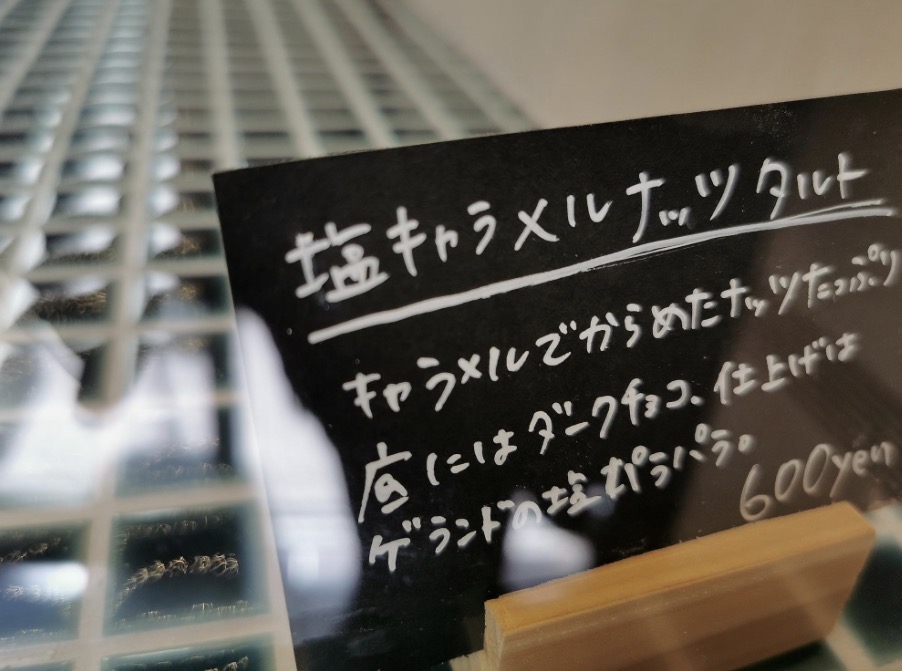 塩キャラメルナッツタルト
キャラメルでからめたナッツたっぷり
底にはダークチョコ、仕上げは
ゲランドの塩パラパラ。
600yen